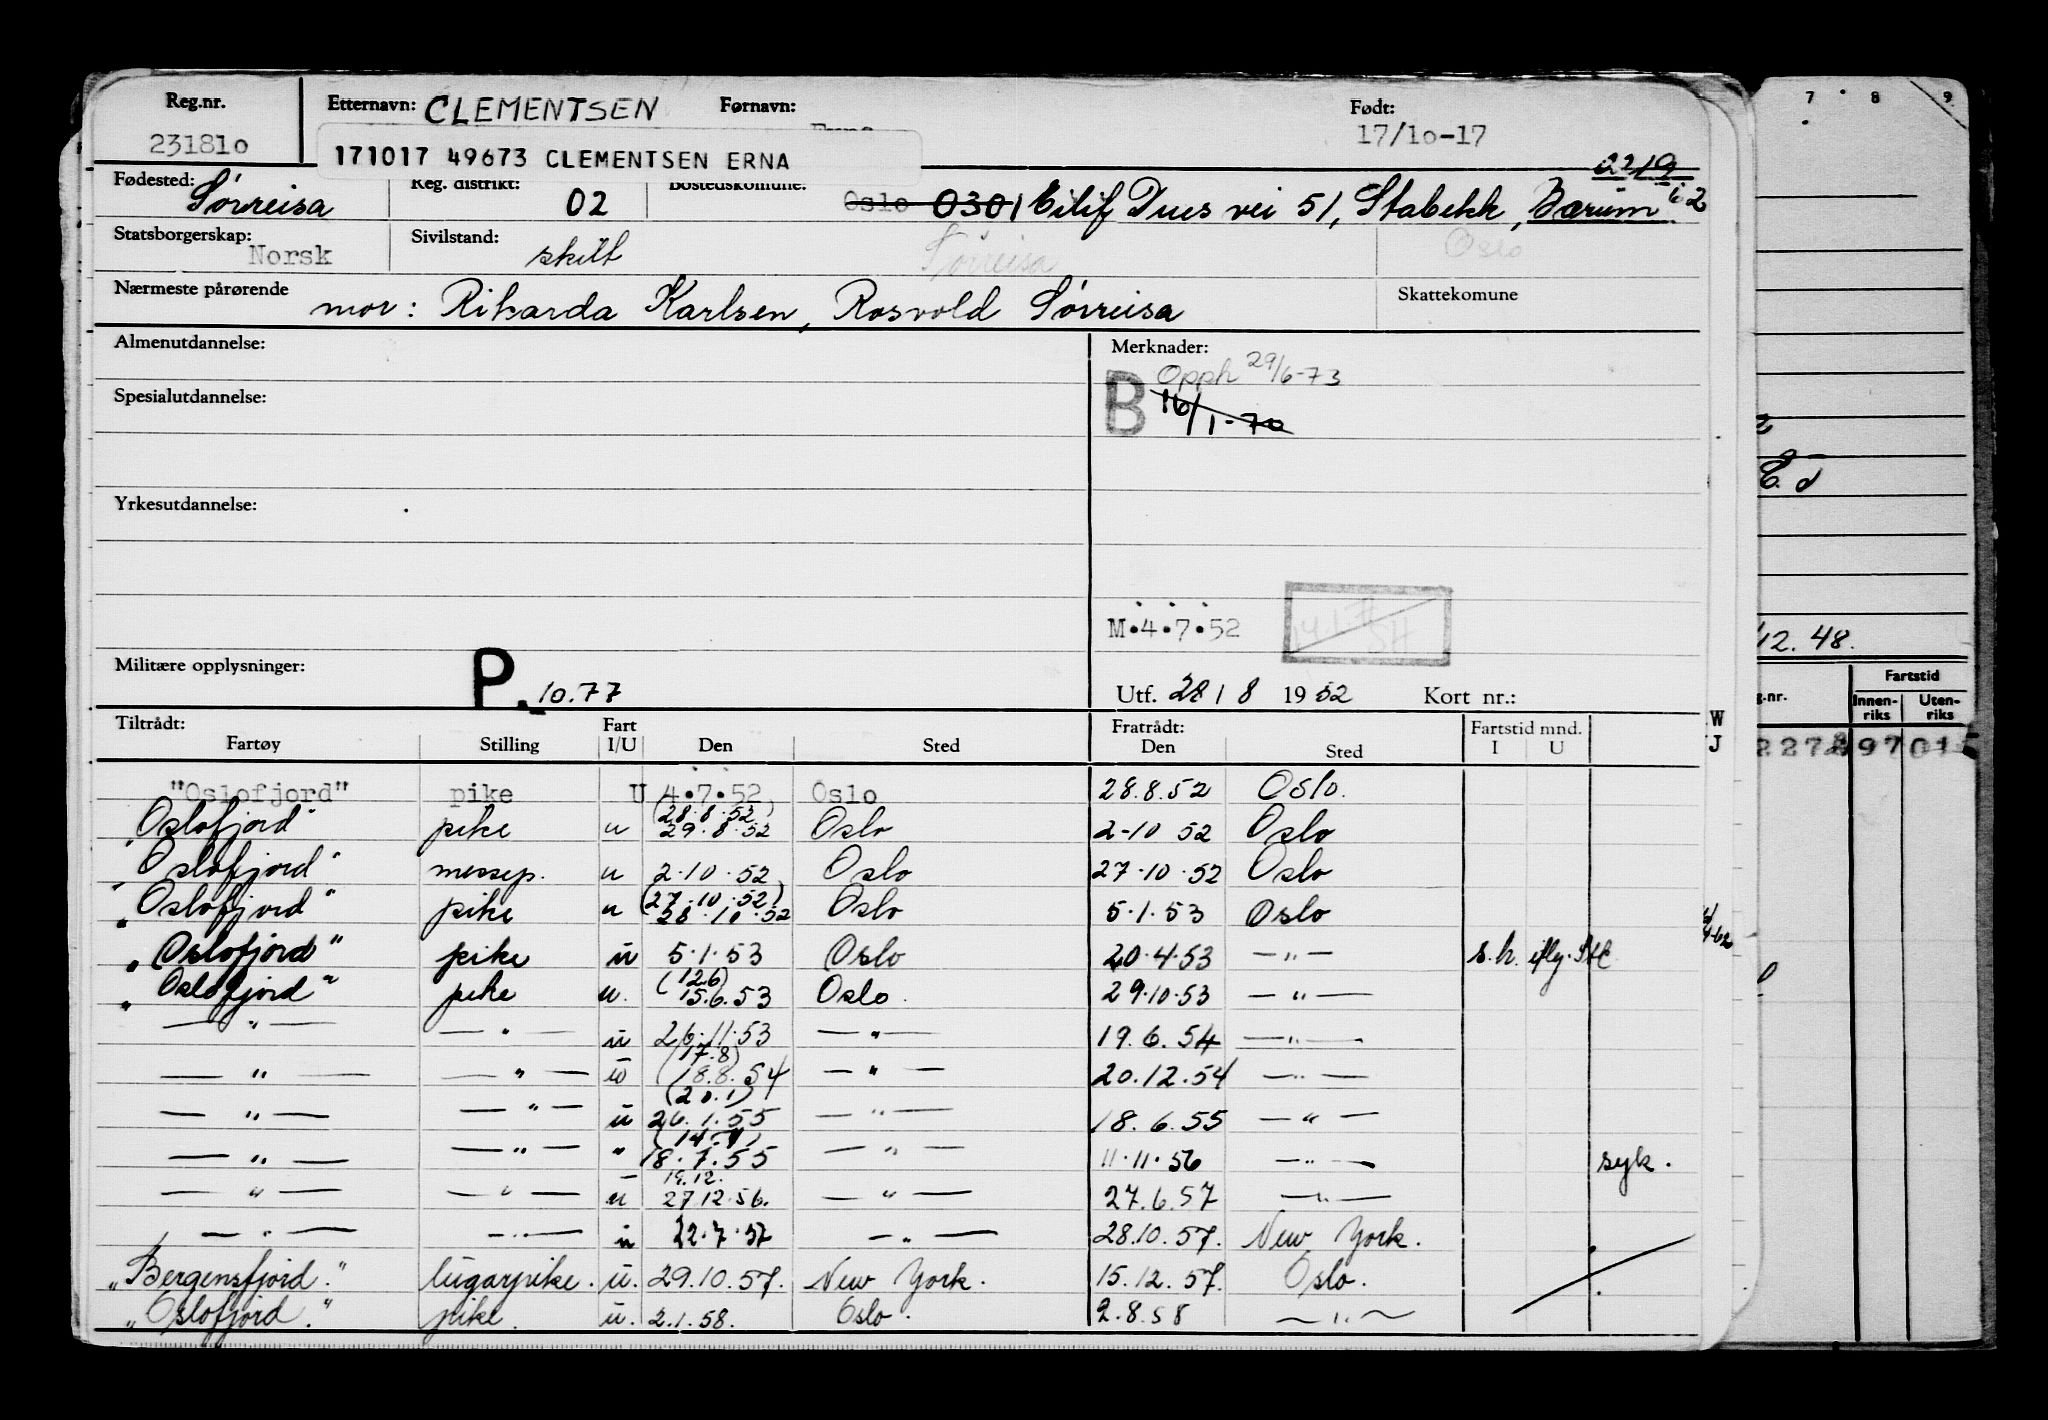 Reg.nr. Etternavn: CLEMENTSEN Fornavn: Født:
231810 17/10-17
171017 49673 CLEMENTSEN ERNA
0219
Fødested: Sørreisa Reg. distrikt: 02 Bostedskommune: Oslo 0301 Eilif Dues vei 51, Stabekk, Bærum
Statsborgerskap: Norsk Sivilstand: skilt Sørreisa Oslo
Nærmeste pårørende mor: Rikarda Karlsen, Rosvold Sørreisa Skattekomune
Almenutdannelse: Merknader:
B Opph 29/6-73
16/1-70
Spesialutdannelse:
Yrkesutdannelse:
M.4.7.52
Militære opplysninger: P. 10.77 Utf. 28/8 1952 Kort nr.:
Tiltrådt: Fart Fratrådt: Fartstid mnd.
Fartøy Stilling I/U Den Sted Den Sted I U
"Oslofjord" pike U 4.7.52 Oslo 28.8.52 Oslo.
"Oslofjord" pike u (28.8.52) 29.8.52 Oslo 2-10 52 Oslo
"Oslofjord" messep. u 2.10.52 Oslo 27.10.52 Oslo
"Oslofjord" pike u (27.10.52) 28.10.52 Oslo 5.1.53 Oslo
"Oslofjord" pike u 5.1.53 Oslo 20.4.53 —"— s.h.
"Oslofjord" pike u. (12.6) 15.6.53 Oslo. 29.10.53 —"—
—"— —"— u 26.11.53 —"— 19.6.54 —"—
—"— —"— u (17.8) 18.8.54 —"— 20.12.54 —"—
—"— —"— u (20.1) 26.1.55 —"— 18.6.55 —"—
—"— —"— " (14.7) 18.7.55 —"— 11.11.56 —"— syk.
—"— —"— u 19.12. 27.12.56. —"— 27.6.57 —"—
—"— —"— u 22.7.57 —"— 28.10.57. New York.
"Bergensfjord." lugarpike. u. 29.10.57. New York. 15.12.57. Oslo.
"Oslofjord." pike. u. 2.1.58. Oslo. 2.8.58 —"—
7 8 9
12.48.
Fartstid
Innen-riks Uten-riks
W
J